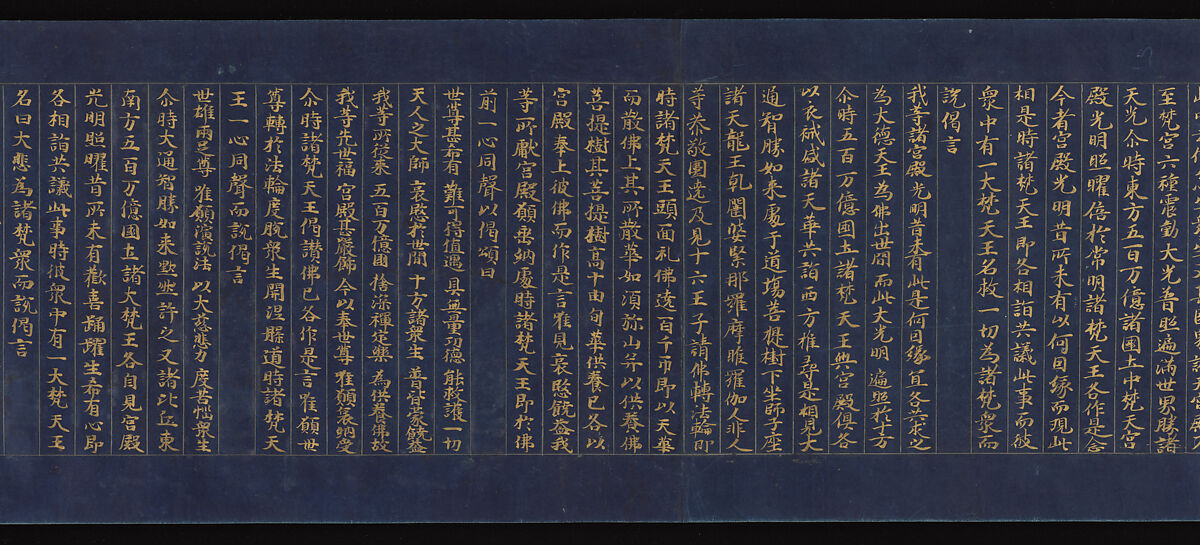 至梵宮六種震動大光普照遍滿世界勝諸
天光尒時東方五百万億諸國土中梵天宮
殿光明照曜倍於常明諸梵天王各作是念
今者宮殿光明昔所未有以何因緣而現此
相是時諸梵天王即各相詣共議此事而彼
衆中有一大梵天王名救一切為諸梵衆而
說偈言
我等諸宮殿 光明昔未有 此是何因緣 宜各共求之
為大德天王 為佛出世間 而此大光明 遍照於十方
尒時五百万億國土諸梵天王與宮殿俱各
以衣裓盛諸天華共詣西方推尋是相見大
通智勝如來處于道塲菩提樹下坐師子座
諸天龍王乹闥婆緊那羅摩睺羅伽人非人
等恭敬圍遶及見十六王子請佛轉法輪即
時諸梵天王頭面礼佛遶百千帀即以天華
而散佛上其所散華如須弥山并以供養佛
菩提樹其菩提樹高十由旬華供養已各以
宮殿奉上彼佛而作是言唯見哀愍饒益我
等所獻宮殿願垂納處時諸梵天王即於佛
前一心同聲以偈頌曰
世尊甚希有 難可得值遇 具無量功德 能救護一切
天人之大師 哀愍於世間 十方諸衆生 普皆蒙饒益
我等所從來 五百万億國 捨深禪定樂 為供養佛故
我等先世福 宮殿甚嚴飾 今以奉世尊 唯願哀納受
尒時諸梵天王偈讃佛已各作是言唯願世
尊轉於法輪度脫衆生開涅槃道時諸梵天
王一心同聲而說偈言
世雄兩足尊 唯願演說法 以大慈悲力 度苦惱衆生
尒時大通智勝如來默然許之又諸比丘東
南方五百万億國土諸大梵王各自見宮殿
光明照曜昔所未有歡喜踊躍生希有心即
各相詣共議此事時彼衆中有一大梵天王
名曰大悲為諸梵衆而說偈言